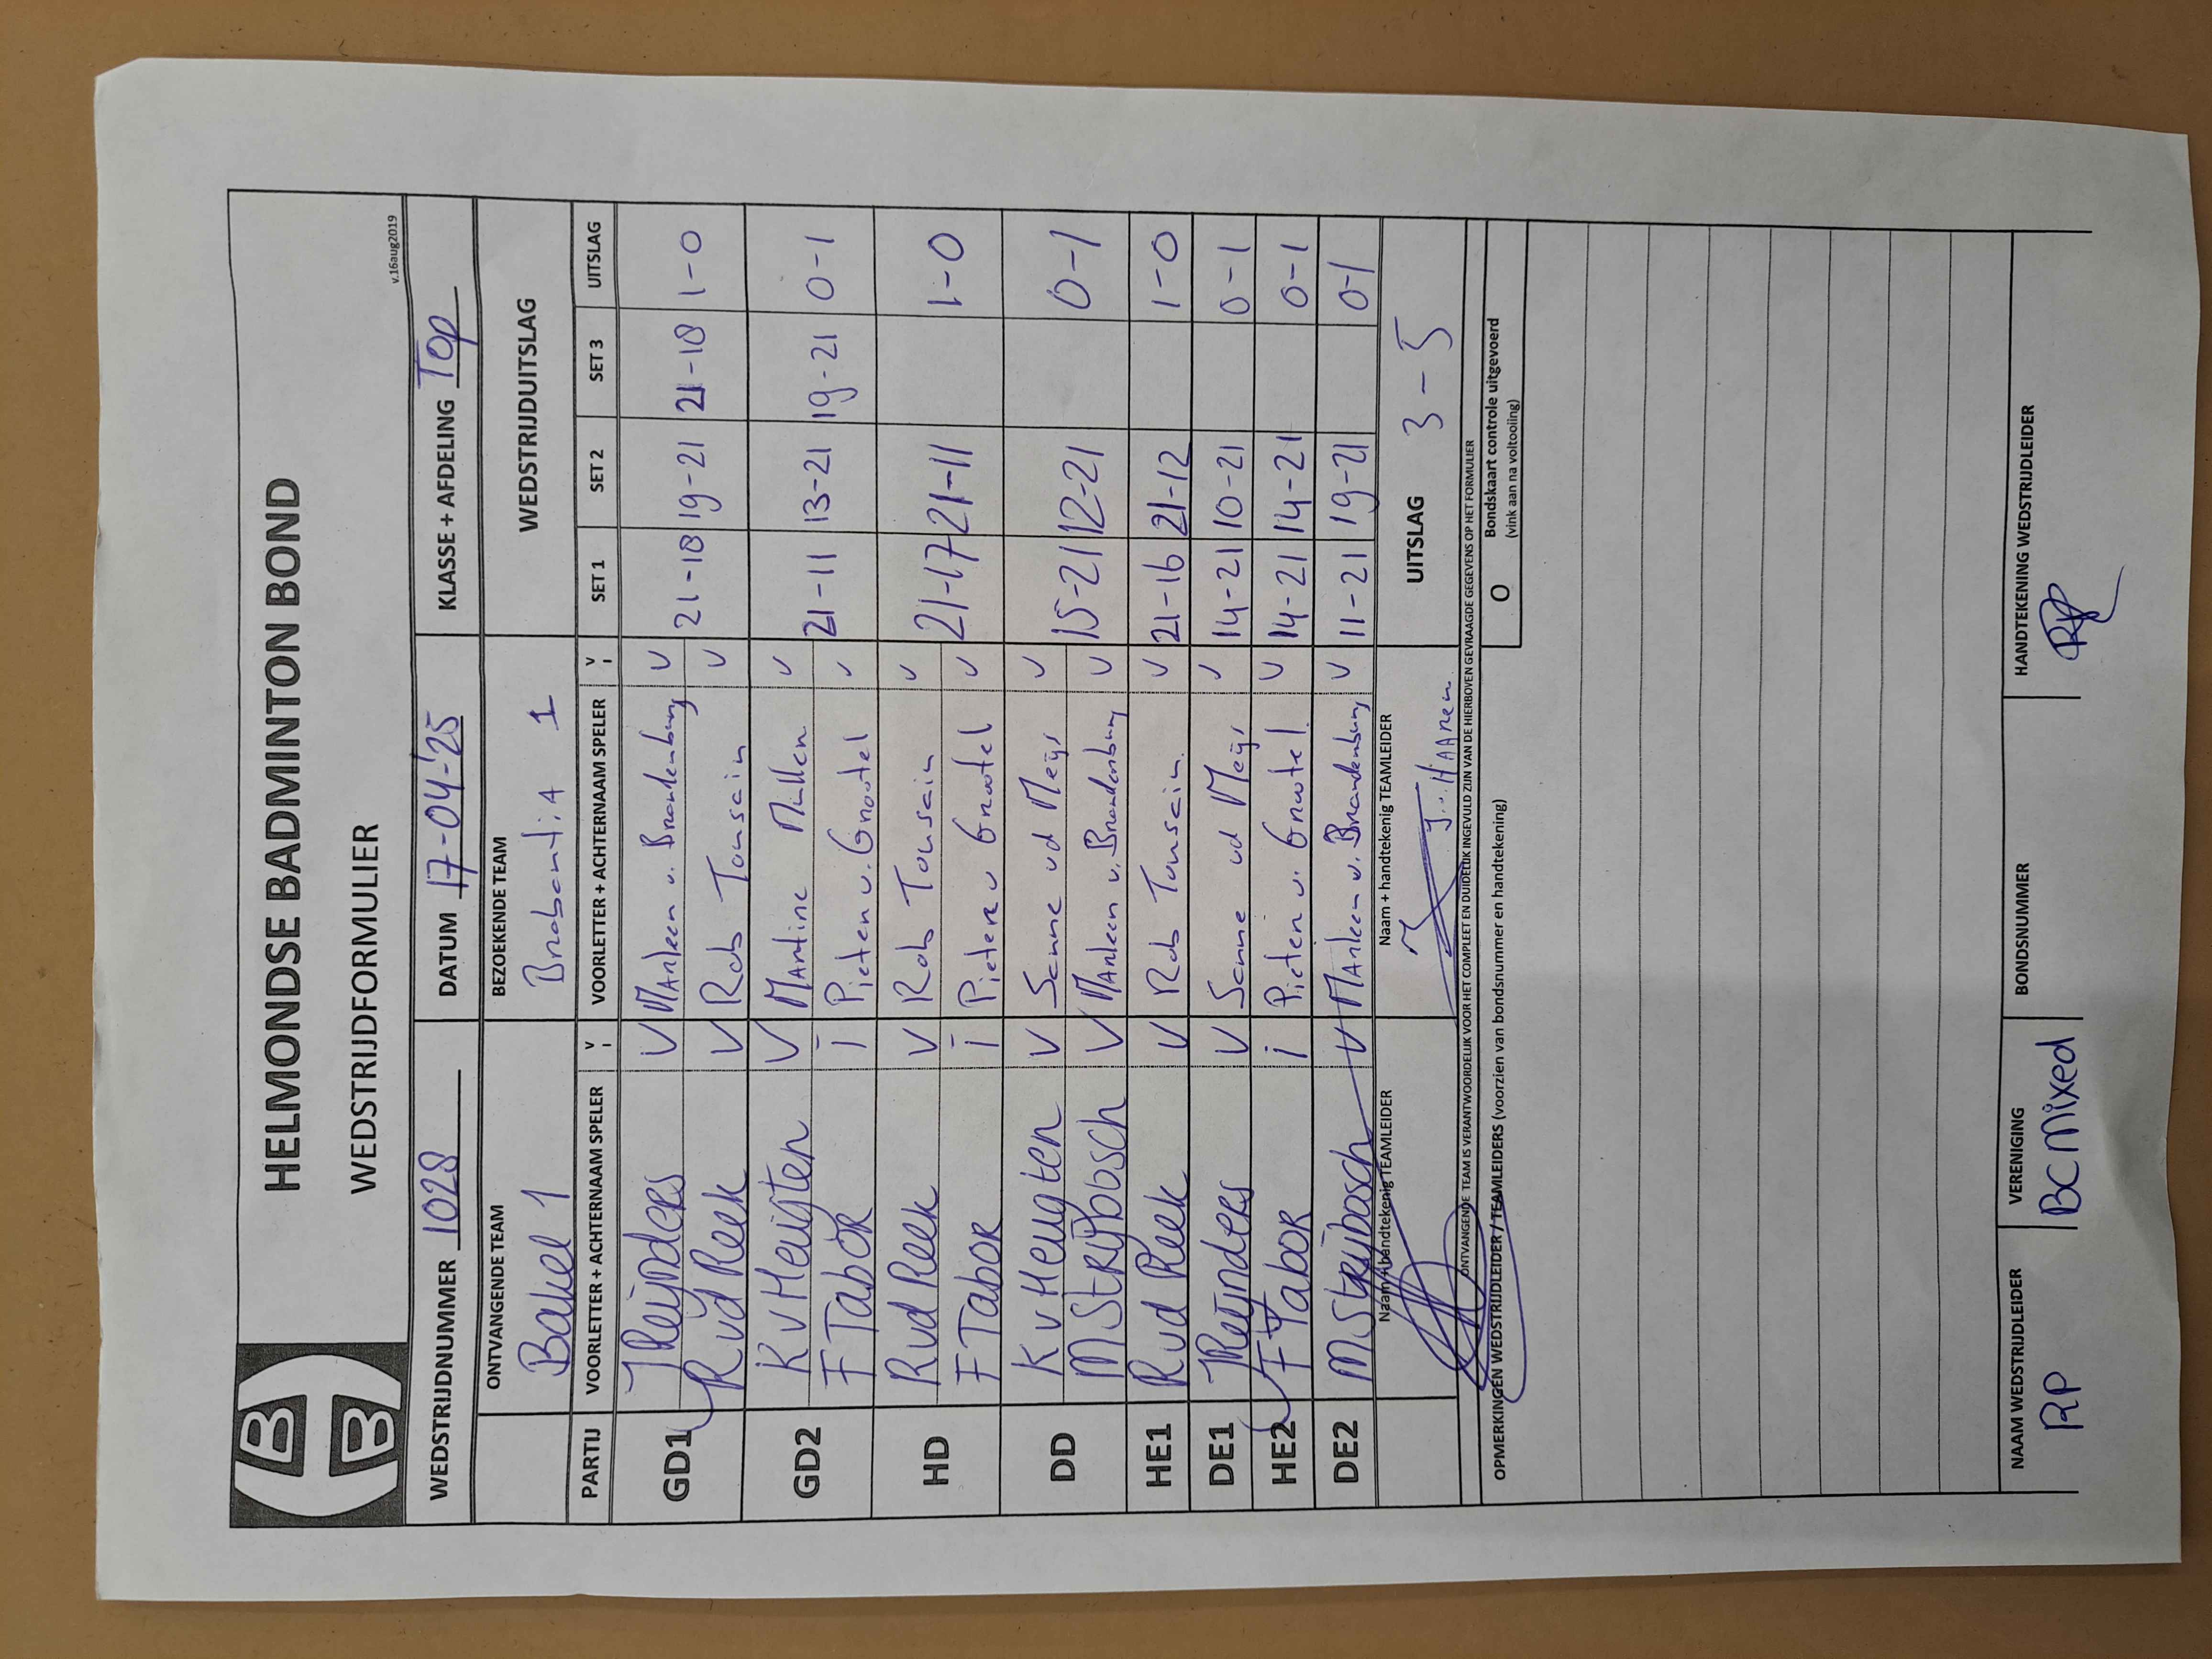 HELMONDSE BADMINTON BOND
WEDSTRIJDFORMULIER
v.16aug2019
WEDSTRIJDNUMMER 1028 DATUM 17-04-'25 KLASSE + AFDELING Top
ONTVANGENDE TEAM BEZOEKENDE TEAM WEDSTRIJDUITSLAG
Bakel 1 Brabantia 1
PARTIJ VOORLETTER + ACHTERNAAM SPELER V I VOORLETTER + ACHTERNAAM SPELER V I SET 1 SET 2 SET 3 UITSLAG
GD1 JReijnders V Marleen v. Brandenburg v
Rvd Reek V Rob Tousain v 21-18 19-21 21-18 1-0
GD2 K v Heugten V Martine Mullen v
F Tabor I Pieter v. Grootel v 21-11 13-21 19-21 0-1
HD Rvd Reek V Rob Tousain v
F Tabor I Pieter v Grootel v 21-17 21-11 1-0
DD K v Heugten V Sanne vd Meijs v
M Strijbosch V Marleen v. Brandenburg v 15-21 12-21 0-1
HE1 Rvd Reek V Rob Tousain v 21-16 21-12 1-0
DE1 JReijnders V Sanne vd Meijs v 14-21 10-21 0-1
HE2 F Tabor i Pieter v. Grootel v 14-21 14-21 0-1
DE2 M Strijbosch V Marleen v. Brandenburg v 11-21 19-21 0-1
Naam + handtekenig TEAMLEIDER Naam + handtekenig TEAMLEIDER UITSLAG 3-5
J. v. Haanen
ONTVANGENDE TEAM IS VERANTWOORDELIJK VOOR HET COMPLEET EN DUIDELIJK INGEVULD ZIJN VAN DE HIERBOVEN GEVRAAGDE GEGEVENS OP HET FORMULIER
OPMERKINGEN WEDSTRIJDLEIDER / TEAMLEIDERS (voorzien van bondsnummer en handtekening) O Bondskaart controle uitgevoerd
(vink aan na voltooiing)
NAAM WEDSTRIJDLEIDER VERENIGING BONDSNUMMER HANDTEKENING WEDSTRIJDLEIDER
RP BCmixed RP